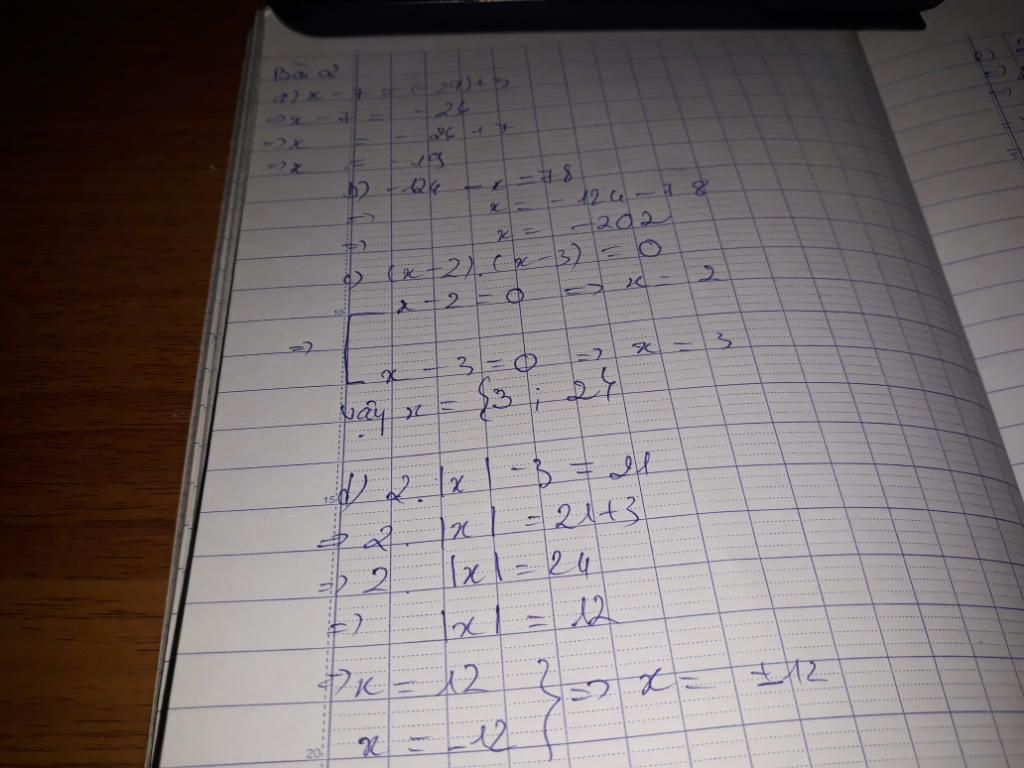 Bài 2
a) x - 7 = (-29) + 5
=> x - 7 = - 24
=> x = - 26 + 7
=> x = - 19
b) - 124 - x = 78
=> x = - 124 - 78
=> x = - 202
c) (x - 2) . (x - 3) = 0
10
x - 2 = 0 => x = 2
=>
x - 3 = 0 => x = 3
Vậy x = {3 ; 2}
15
d) 2. |x| - 3 = 21
=> 2 . |x| = 21 + 3
=> 2 . |x| = 24
=> |x| = 12
=> x = 12 } => x = ±12
x = -12
20